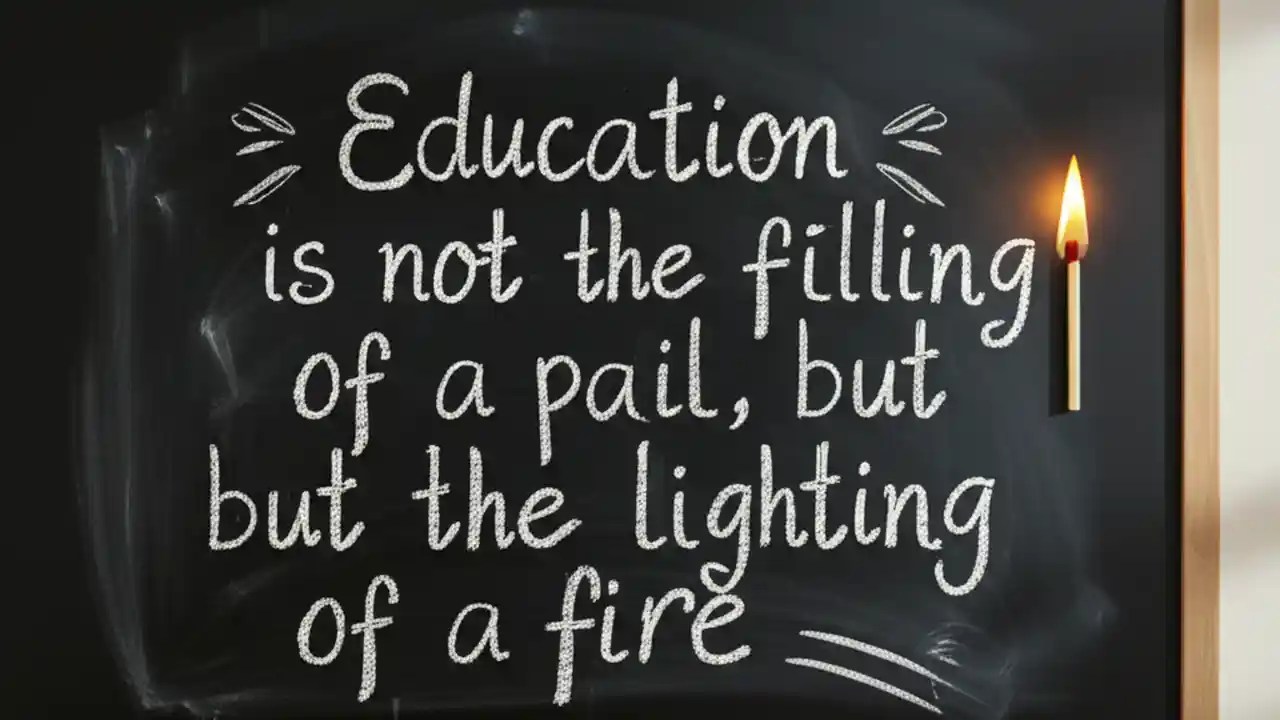 Education
is not the filling
of a pail, but
but the lighting
of a fire